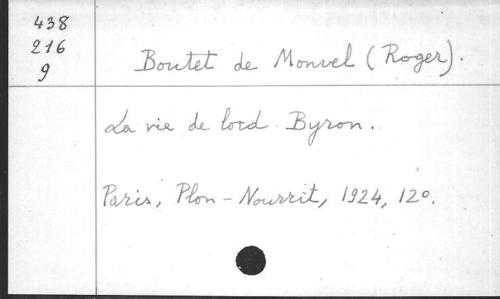 438
216
9
Boutet de Monvel (Roger).
La vie de lord Byron.
Paris, Plon-Nourrit, 1924, 12°.